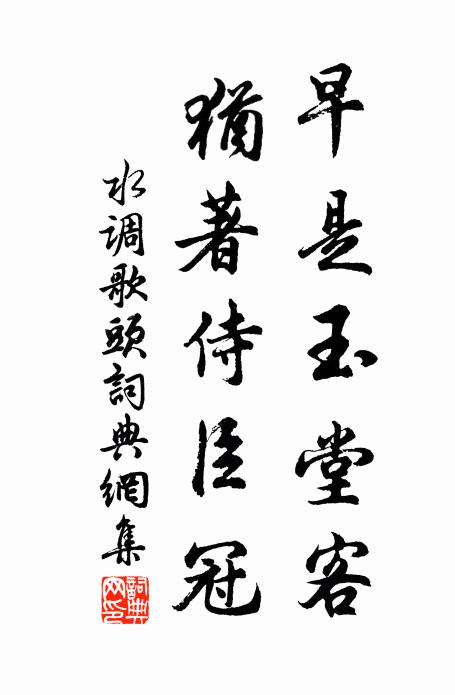 早是玉堂客
猶著侍臣冠
水调歌頭詞典網集
詞典
网印